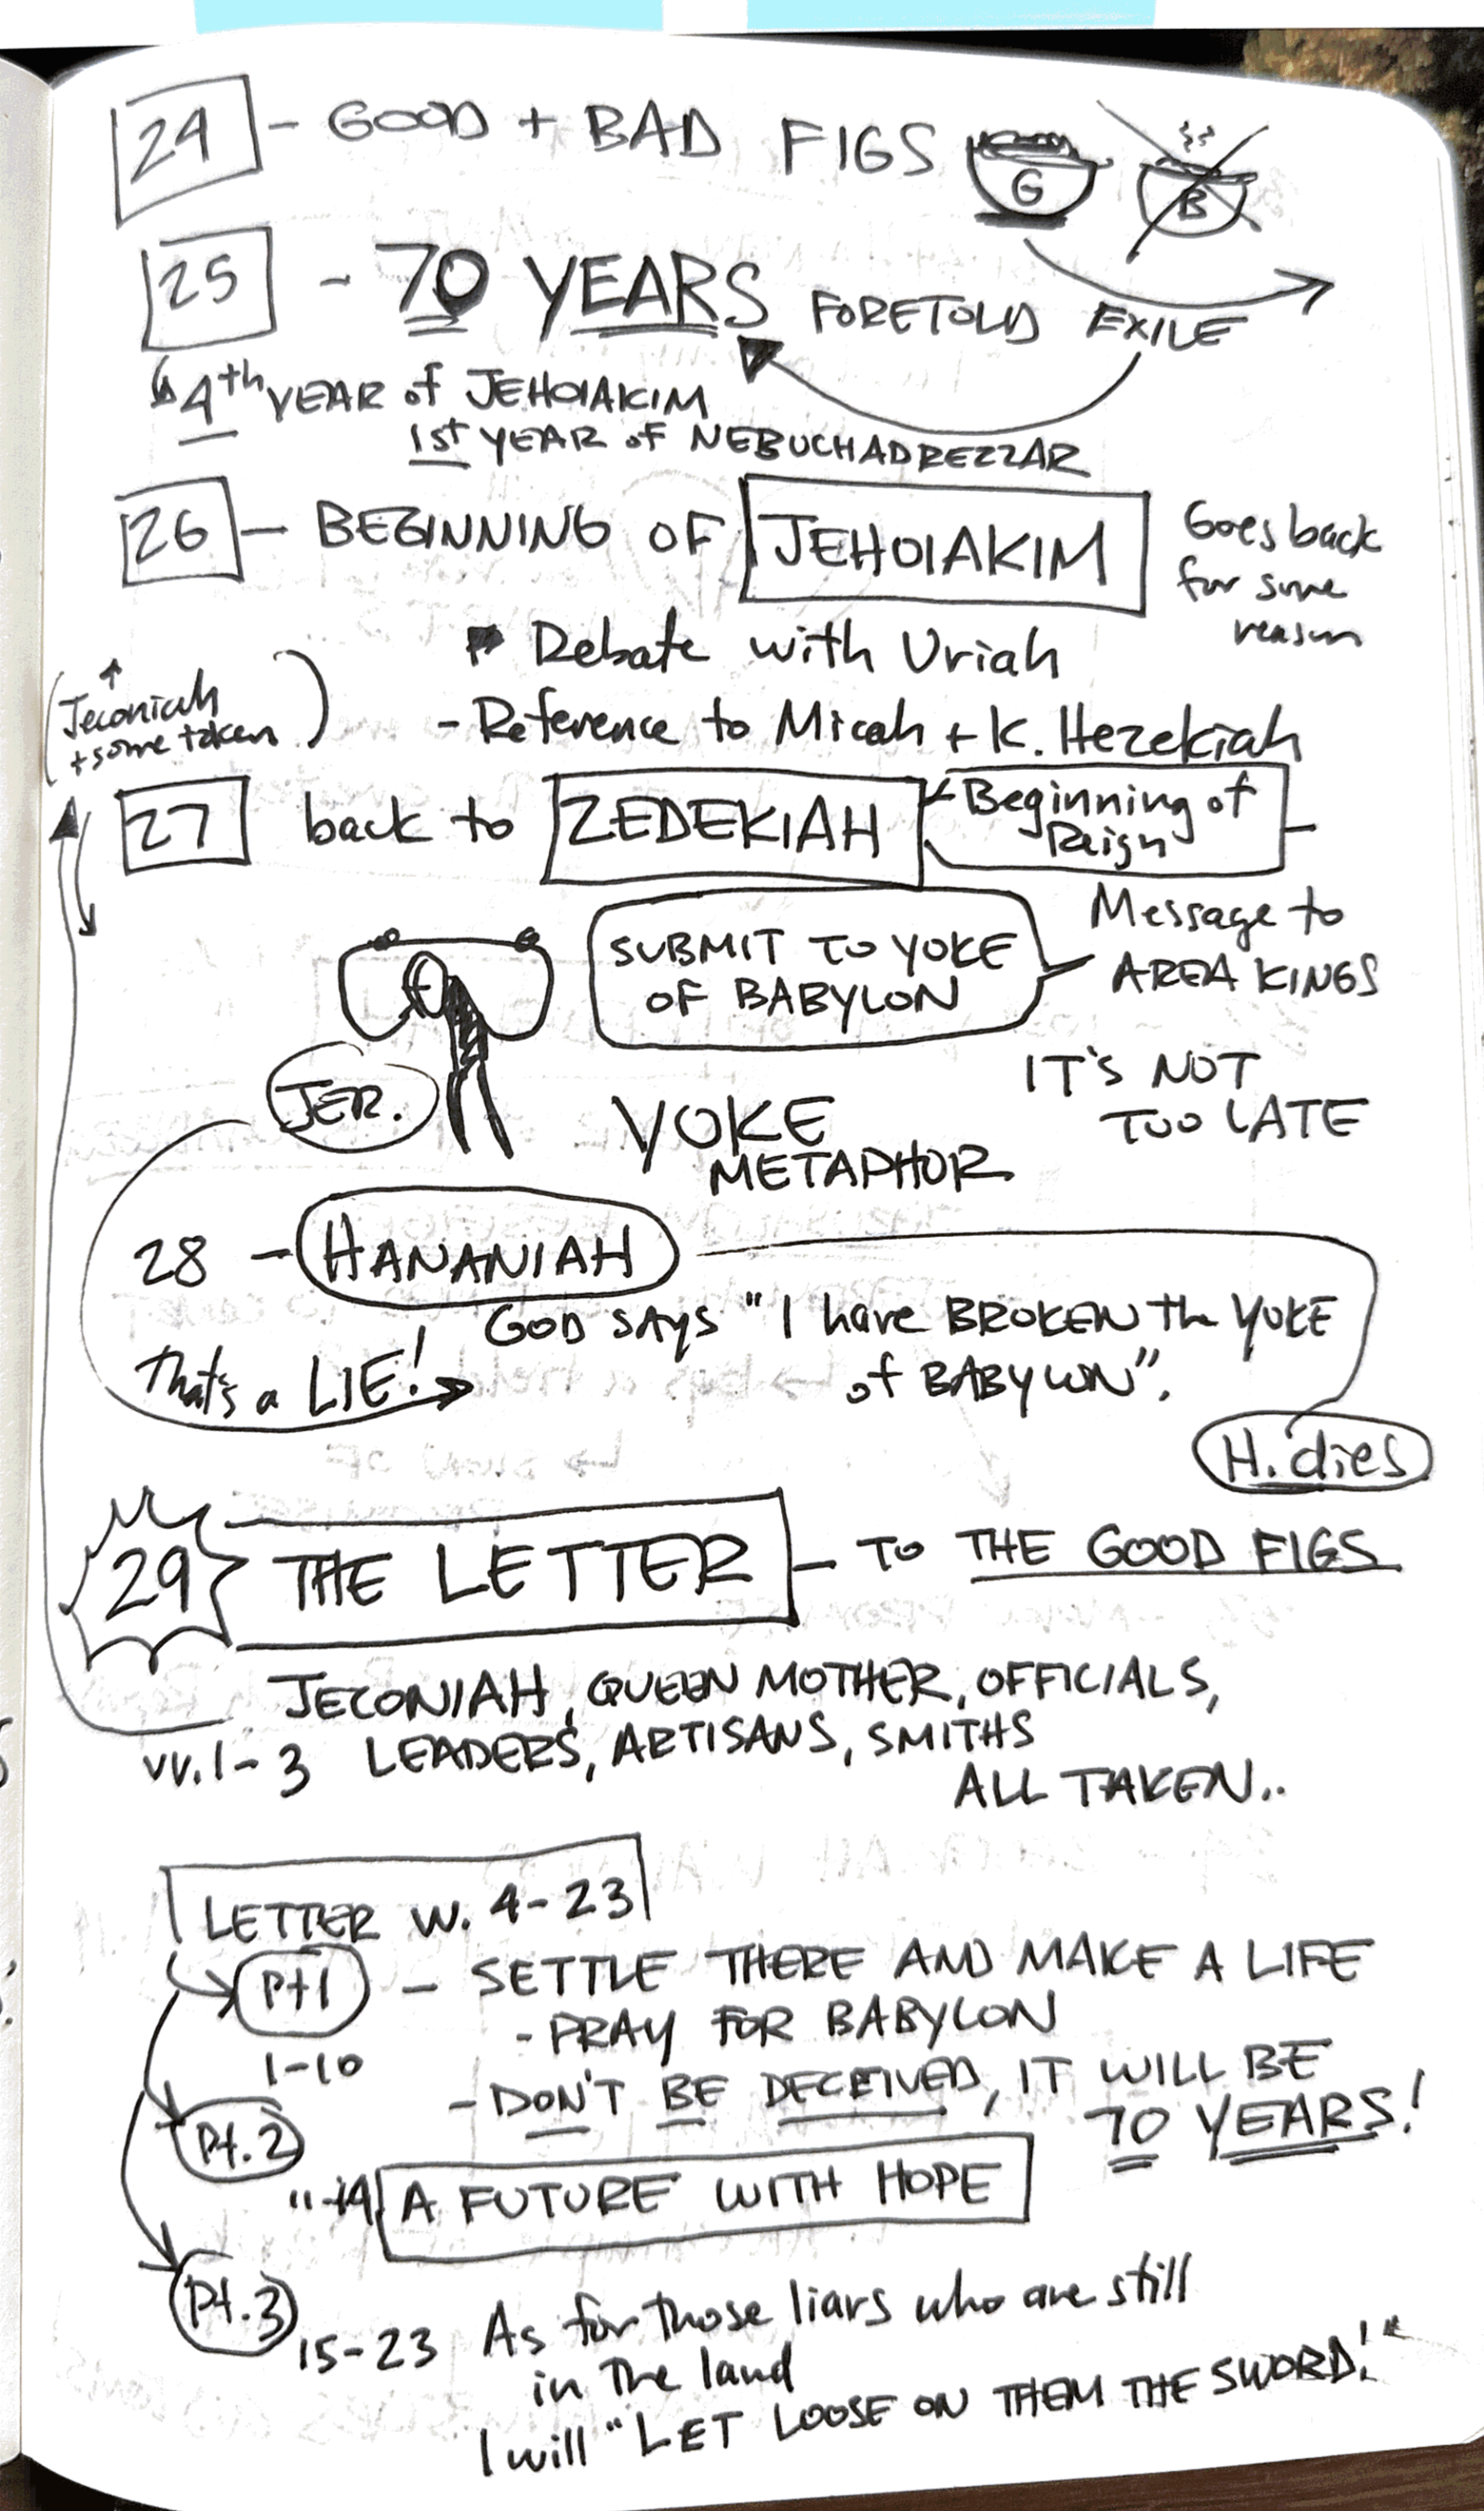 24 - GOOD + BAD FIGS G B
25 - 70 YEARS FORETOLD EXILE
4th YEAR of JEHOIAKIM
1st YEAR OF NEBUCHADREZZAR
26 - BEGINNING OF JEHOIAKIM
Goes back
for some
reason
Debate with Uriah
- Reference to Micah + K. Hezekiah
(Jeconiah
+ some taken)
27 back to ZEDEKIAH
Beginning of
Reign -
Message to
AREA KINGS
SUBMIT TO YOKE
OF BABYLON
IT'S NOT
TOO LATE
JER.
YOKE
METAPHOR
28 - HANANIAH
GOD SAYS "I have BROKEN the YOKE
of BABYLON".
That's a LIE!
H. dies
29 THE LETTER - TO THE GOOD FIGS
JECONIAH, QUEEN MOTHER, OFFICIALS,
vv. 1-3 LEADERS, ARTISANS, SMITHS
ALL TAKEN..
LETTER vv. 4-23
Pt 1 - SETTLE THERE AND MAKE A LIFE
1-10
- PRAY FOR BABYLON
- DON'T BE DECEIVED, IT WILL BE
70 YEARS!
Pt. 2
11-14 A FUTURE WITH HOPE
Pt. 3
15-23 As for those liars who are still
in the land
I will "LET LOOSE ON THEM THE SWORD!"